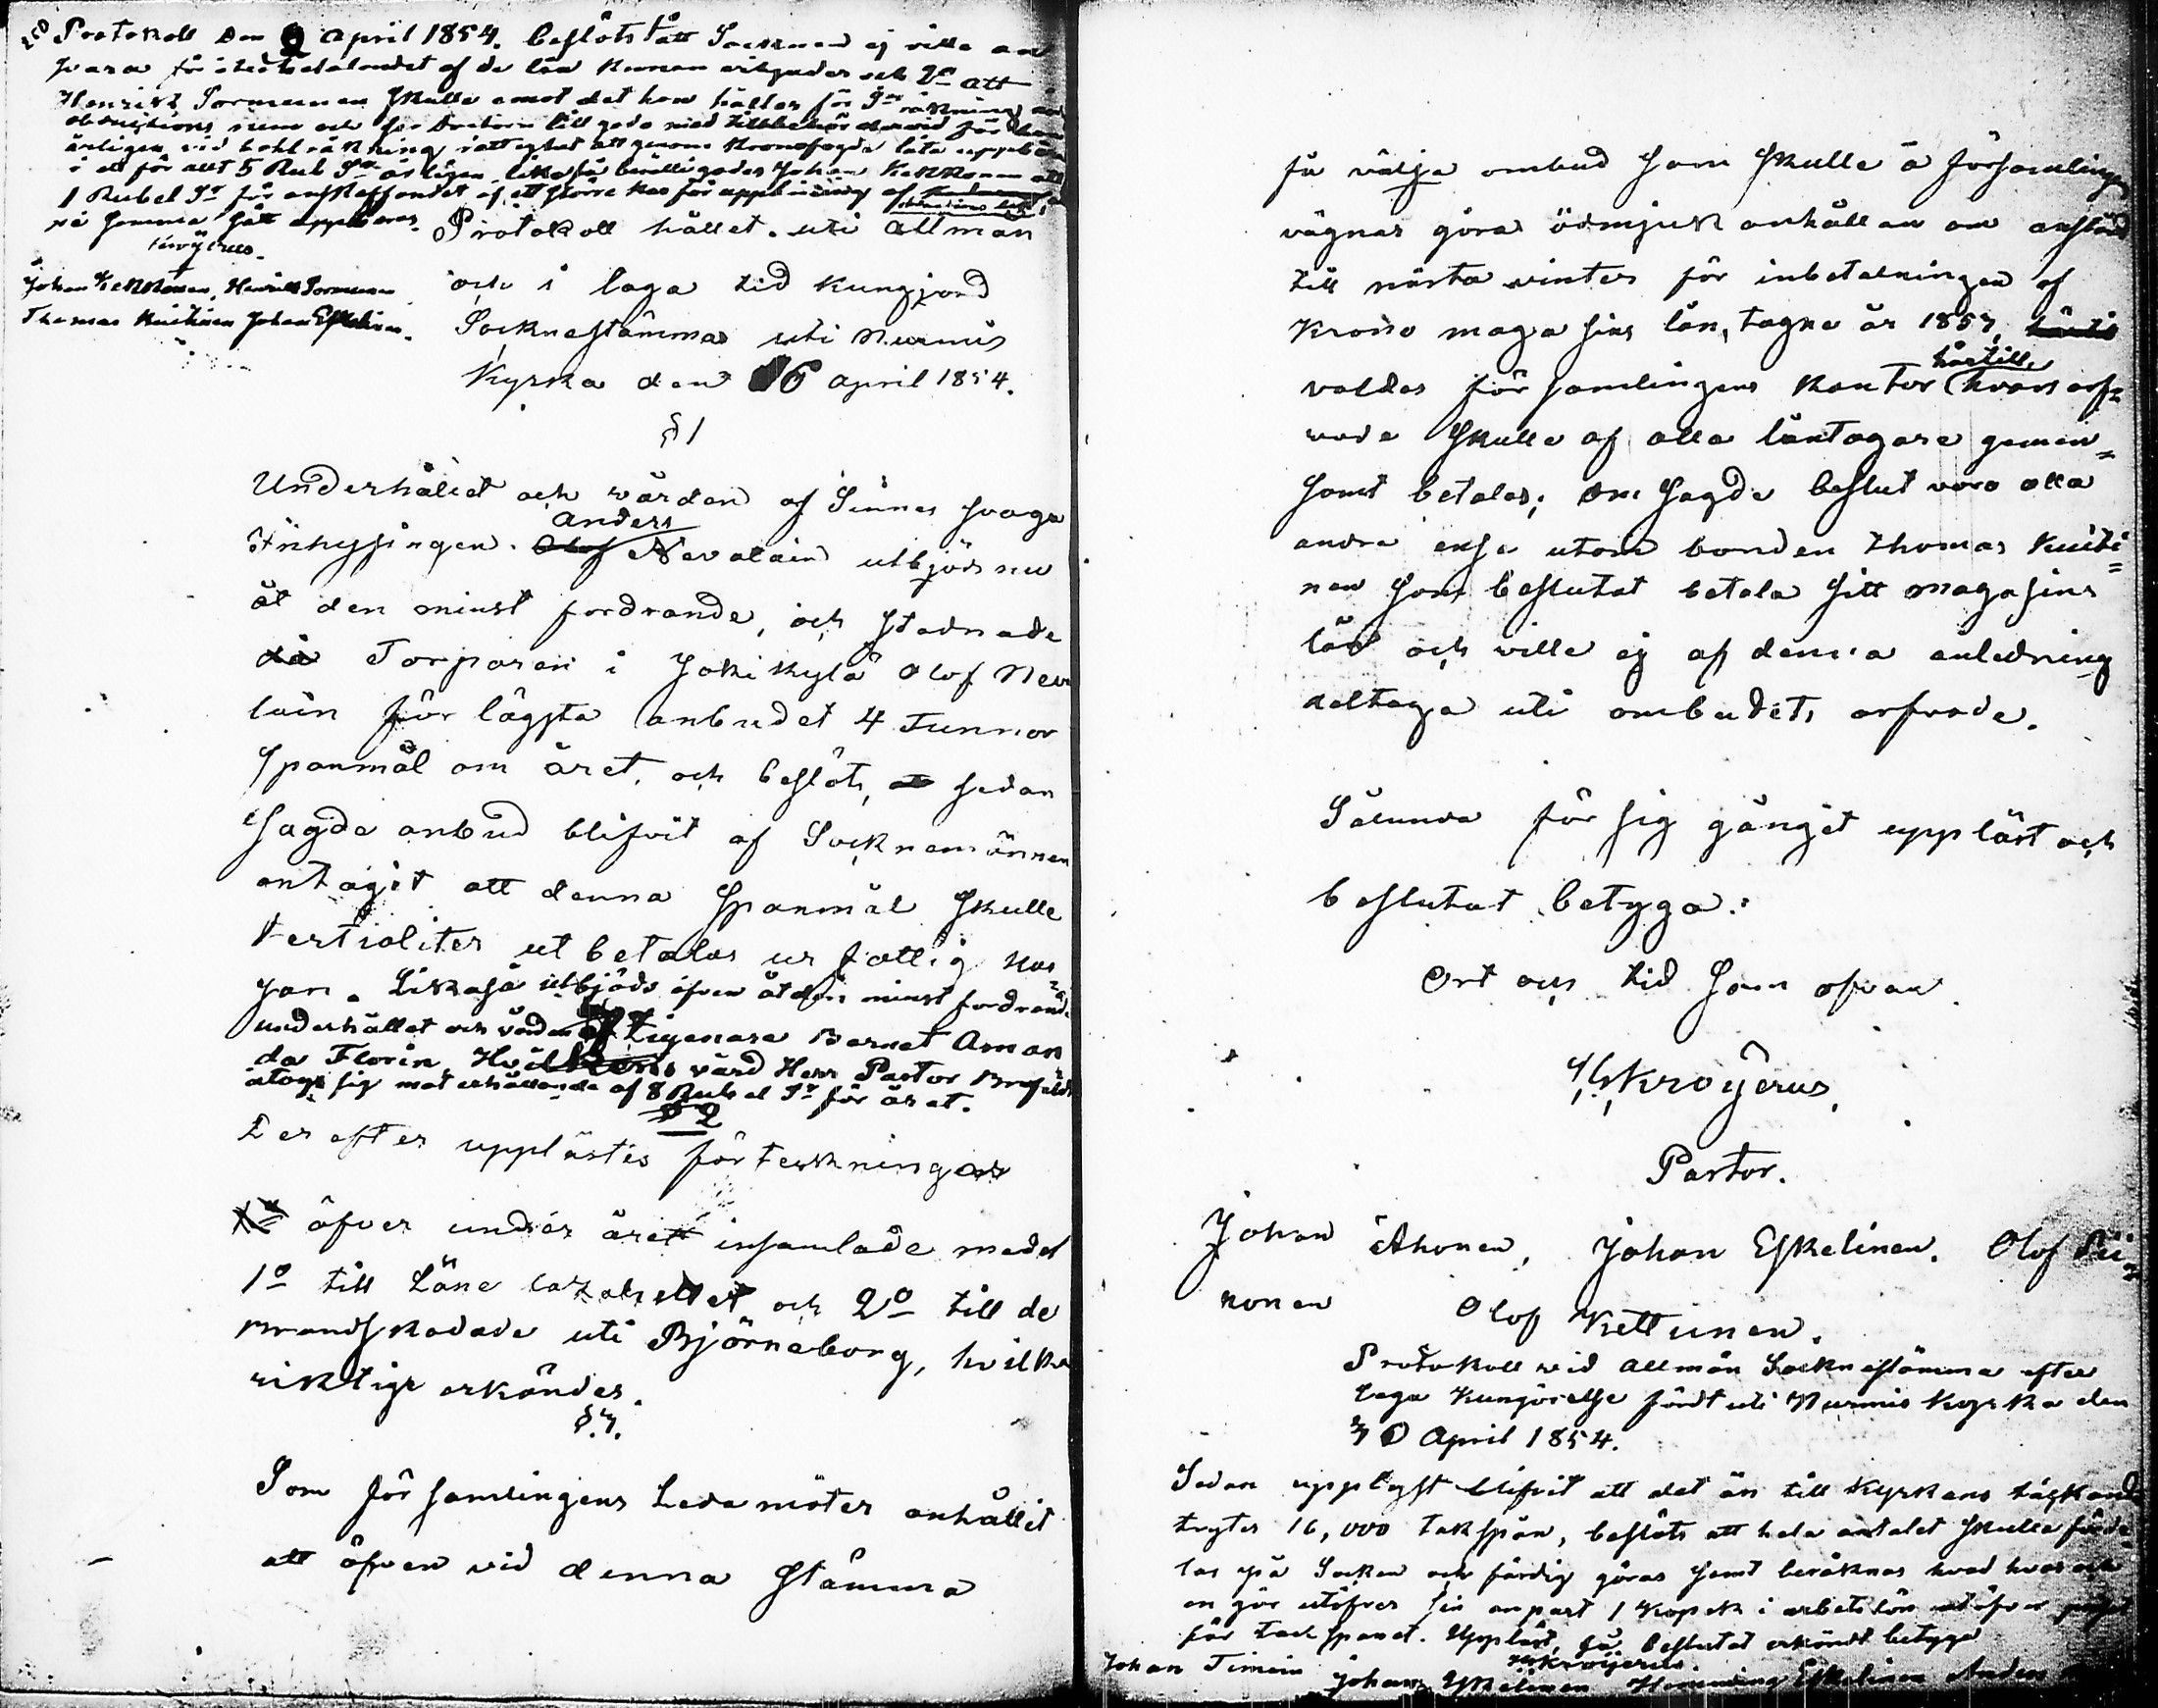 Protokoll den 9 April 1854. beslöts 1° att Socknen ej ville an
svara för återbetalandet af de lån Kronan erbjuder och 2° att
Henrik Tormunen skulle emot det han håller för Sn räkning
obduktions rum och till goda med tillbehör dervid för
årligen vid bokräkning rättighet att genom Kronofogde låta uppbära
i ett för allt 5 Rub Sr årligen likaså beviljades Johan Kekkonen att
1 Rubel Sr för anskaffandet af ett större kar för uppbäring af
på samma sätt uppbäras.
Krōÿerus.
Johan Kekkonen, Henrik Tormunen
Thomas Kuitinen Johan Eskelinen.
Protokoll hållet uti allmän
och i laga tid kungjord
Socknestämma uti Nurmis
Kyrka den 16 April 1854.
§ 1
Underhållet och vården af Sinnes svaga
Anders
Inhysingen Olof Nevalain utbjöds nu
åt den minst fordrande, och stadnade
då Torparen i Jokikylä Olof Neva
lain för lägsta anbudet 4 Tunnor
Spanmål om året, och beslöts, att sedan
sagde anbud blifvit af Socknemännen
antagit att denna Spanmål skulle
tertialiter utbetalas ur fattig kas
san. Likaså utbjöds äfven åt den minst fordrande
underhållet och vården af Zigenare Barnet Aman
da Florin, Hvilkens vård Herr Pastor
åtogs sig mot erhållande af 8 Rubel Sr för året.
§ 2
Derefter upplästes förteckningar
öfver under året insamlade medel
1° till Läne lazarettet och 2° till de
Brandskadade uti Björneborg, hvilka
riktige erkändes.
§ 3.
Som församlingens Ledamöter anhållit
att äfven vid denna Stämma
få välja ombud som skulle å församlingens
vägnar göra ödmjuk anhållan om anstånd
till nästa vinter för inbetalningen af
Krono magasins lån, tagne år 1853,
härtill
valdes församlingens Kantor (hvars arf=
vode skulle af alla låntagare gemen=
samt betalas; Om sagde beslut voro alla
andra ense utom bonden Thomas Kuiti=
nen som beslutat betala sitt magasins
lån och ville ej af denna anledning
deltaga uti ombudets arfvode.
Sålunda för sig gånget uppläst och
beslutat betyga:
Ort och tid som ofvan.
Krōÿerus,
Pastor.
Johan Ahonen, Johan Eskelinen. Olof Pii=
nonen Olof Kettunen.
Protokoll vid allmän Socknestämma efter
laga Kungörelse fördt uti Nurmis Kyrka den
30 April 1854.
Sedan upplyst blifvit att det än till Kyrkans täckande
tryter 16,000 takspån, beslöts att hela antalet skulle förde
las på Socken och färdig göras samt beräknas hvad hvar och
en gör utöfver sin anpart 1 Kopek i arbetslön utöfver
för takspånet. Uppläst, så beslutat erkändt betyga
Krōÿerus.
Johan Timoin Johan Eskelinen Henning Eskelinen Anders